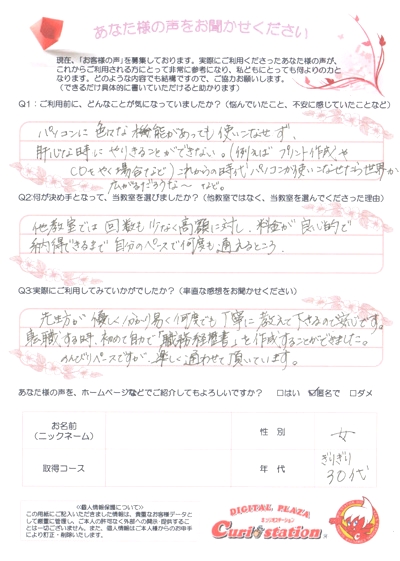 あなた様の声をお聞かせください
現在、「お客様の声」を募集しております。実際にご利用くださったあなた様の声が、
これからご利用される方にとって非常に参考になり、私どもにとっても何よりの力と
なります。どのような内容でも結構ですので、ご協力お願いします。
（できるだけ具体的に書いていただけると助かります）
Q1：ご利用前に、どんなことが気になっていましたか？（悩んでいたこと、不安に感じていたことなど）
パソコンに色々な機能があっても使いこなせず、
肝心な時にやりきることができない。（例えばプリント作成や
CDをやく場合など）これからの時代パソコンが使いこなせたら世界が
広がるだろうな〜など。
Q2:何が決め手となって、当教室を選びましたか？（他教室ではなく、当教室を選んでくださった理由）
他教室では回数も少なく高額に対し、料金が良心的で
納得できるまで自分のペースで何度も通えるところ。
Q3:実際にご利用してみていかがでしたか？（率直な感想をお聞かせください）
先生方が優しく分かり易く何度でも丁寧に教えて下さるので安心です。
転職する時、初めて自力で「職務経歴書」を作成することができました。
のんびりペースですが、楽しく通わせて頂いています。
あなた様の声を、ホームページなどでご紹介してもよろしいですか？ □はい ☑匿名で □ダメ
お名前
（ニックネーム）
性 別
女
取得コース
年 代
ぎりぎり
30代
《個人情報保護について》
この用紙にご記入いただきました情報は、貴重なお客様データと
して厳重に管理し、ご本人の許可なく外部への開示・提供するこ
とは一切ございません。また、個人情報はご本人様からのお申手
により訂正・削除いたします。
DIGITAL PLAZA
キュリオステーション
Curio station